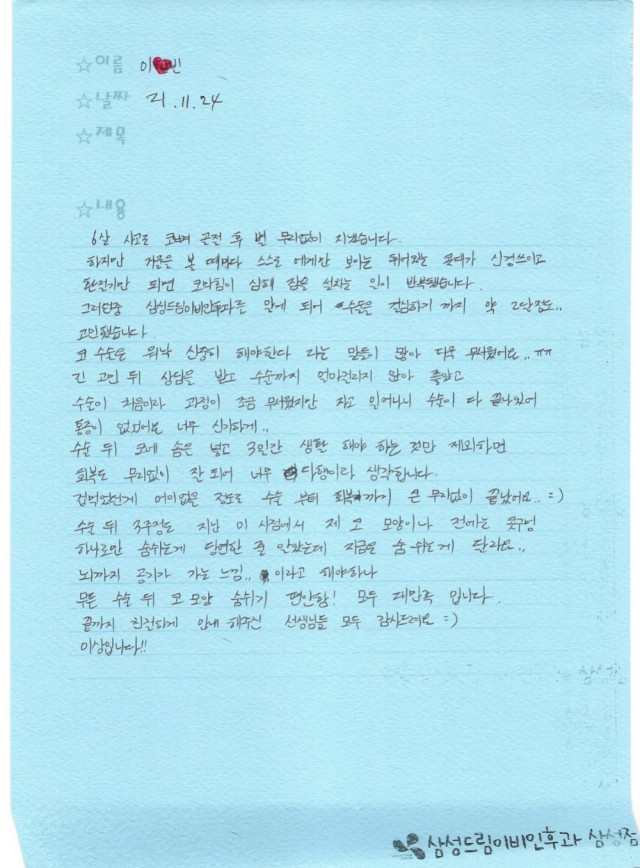 ☆이름 이♥빈
☆날짜 21.11.24
☆제목
☆내용
6살 사고로 코뼈 골절 후 별 무리없이 지냈습니다.
하지만 거울을 볼 때마다 스스로 에게만 보이는 휘어있는 콧대가 신경쓰이고
환절기만 되면 코막힘이 심해 잠을 설치는 일이 반복됐습니다.
그러던중 삼성드림이비인후과를 알게 되어 수술을 결심하기 까지 약 2달정도..
고민했습니다.
코 수술은 워낙 신중히 해야한다 라는 말들이 많아 더욱 무서웠어요.. ㅠㅠ
긴 고민 뒤 상담을 받고 수술까지 얼마걸리지 않아 좋았고
수술이 처음이라 과정이 조금 무서웠지만 자고 일어나니 수술이 다 끝나있어
통증이 없었어요 너무 신기하게..
수술 뒤 코에 솜을 넣고 3일간 생활 해야 하는 것만 제외하면
회복도 무리없이 잘 되어 너무 다행이라 생각합니다.
겁먹었던게 어이없을 정도로 수술 부터 회복까지 큰 무리없이 끝났어요.. =)
수술 뒤 3주정도 지난 이 시점에서 제 코 모양이나 전에는 콧구멍
하나로만 숨쉬는게 당연한 줄 알았는데 지금은 숨 쉬는게 달라요..
뇌까지 공기가 가는 느낌.. 이라고 해야하나
무튼 수술 뒤 코 모양 숨쉬기 편안함! 모두 대만족 입니다.
끝까지 친절하게 안내 해주신 선생님들 모두 감사드려요 =)
이상입니다!!
삼성드림이비인후과 삼성점